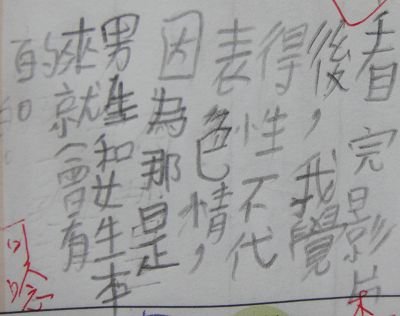 看完影片
後,我覺
得性不代
表色情,
因為那是
男生和女生本
來就會有
的